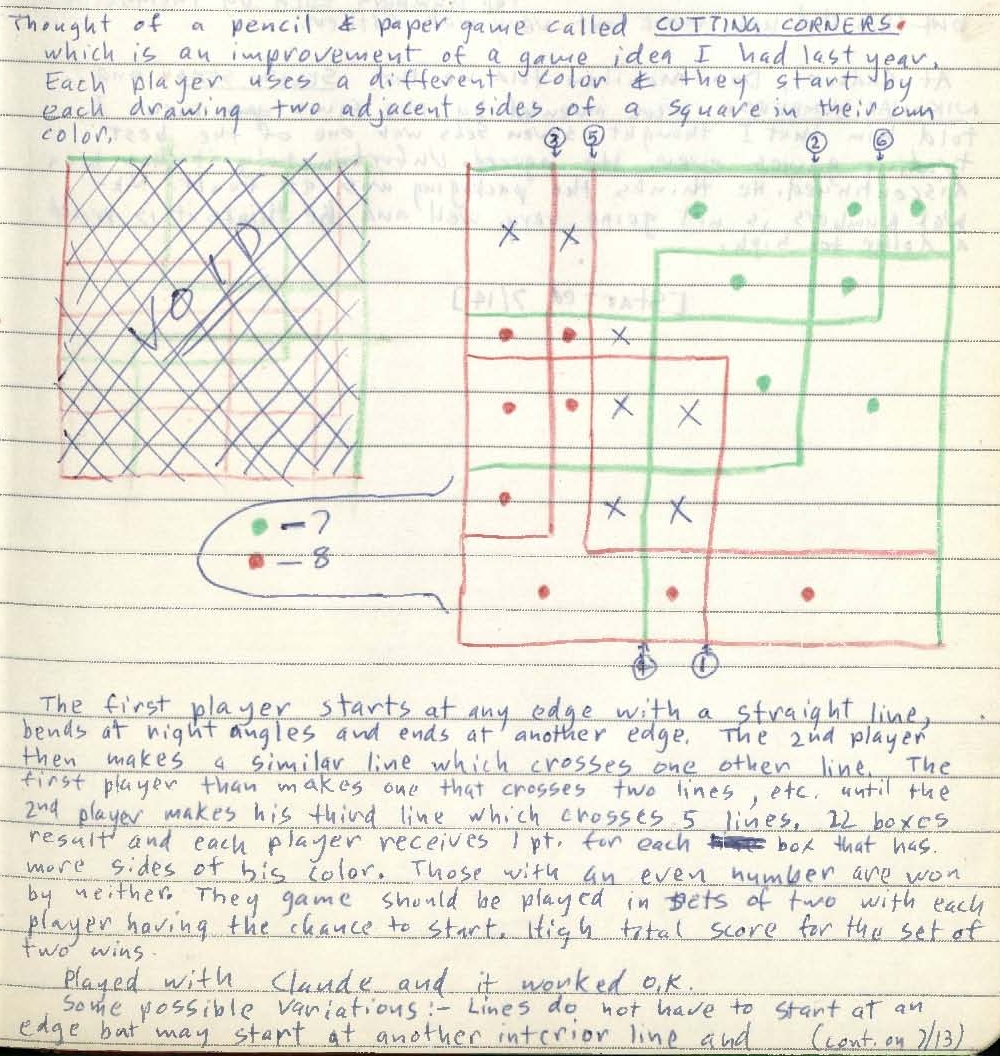 Thought of a pencil & paper game called CUTTING CORNERS.
which is an improvement of a game idea I had last year.
Each player uses a different color & they start by
each drawing two adjacent sides of a square in their own
color.
3 5 2 6
VOID
X X
X
X X
X X
- 7
- 8
4 1
The first player starts at any edge with a straight line,
bends at right angles and ends at another edge. The 2nd player
then makes a similar line which crosses one other line. The
first player than makes one that crosses two lines, etc. until the
2nd player makes his third line which crosses 5 lines. 22 boxes
result and each player receives 1 pt. for each box that has
more sides of his color. Those with an even number are won
by neither. They game should be played in sets of two with each
player having the chance to start. High total score for the set of
two wins.
Played with Claude and it worked O.K.
Some possible variations:- Lines do not have to start at an
edge but may start at another interior line and (cont. on 7/13)